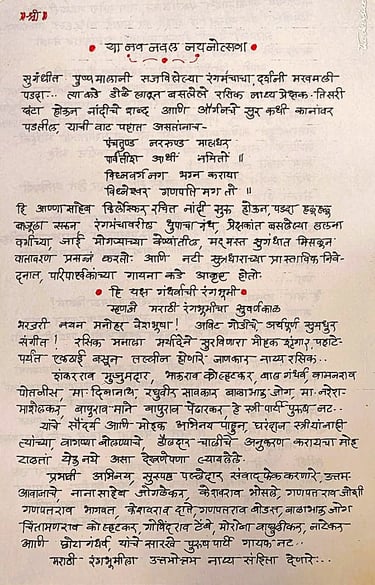 ॥श्री॥
या नव नवल नयनोत्सवा
सुगंधीत पुष्पमालांनी सजविलेल्या रंगमंचाचा, दर्शनी मखमली
पडदा... त्याकडे डोळे लावून बसलेले रसिक नाट्य प्रेक्षक- तिसरी
घंटा होऊन नांदीचे शब्द आणि ऑर्गनचे सुर कधी कानांवर
पडतील, याची वाट पहात असतांनाच-
पंचतुण्ड नररुण्ड मालधर
पार्वतीश आधी नमितो ॥
विघ्नवर्ग नग भग्न कराया
विघ्नेश्वर गणपति मग तो ॥
हि आण्णासाहेब किर्लोस्कर रचित नांदी सुरू होऊन, पडदा हळूहळू
बाजूला सरून रंगमंचावरील धुपाचा गंध, प्रेक्षकांत बसलेल्या ललना
वर्गाच्या, जाई मोगऱ्याच्या वेण्यातील, मदमस्त सुगंधात मिसळून
वातावरण प्रसन्न करतो आणि नटी सुत्रधाराच्या प्रास्ताविक निवे-
दनात, पारिपार्श्वकांच्या गायना कडे आकृष्ट होतो-
हि यक्ष गंधर्वांची रंगभूमी
म्हणजे मराठी रंगभूमीचा सुवर्णकाळ
भरजरी नयन मनोहर वेशभुषा! अविट गोडीचे, अर्थपूर्ण सुमधुर
संगीत! रसिक मनाला मर्यादेने सुखविणारा मोहक शृंगार, पहाटे-
पर्यंत एकठाई बसून तल्लीन होणारे जाणकार नाट्य रसिक..
शंकरराव मुजुमदार, भाऊराव कोल्हटकर, बाल गंधर्व, वामनराव
पोतनीस, मा.दिनानाथ, रघुवीर सावकार, बाळाभाऊ जोग, मा.नरेश-
माशेलकर, बापुराव माने बापुराव पेंढारकर, हे स्त्री पार्टी पुरुष नट..
यांचे सौंदर्य आणि मोहक अभिनय पाहून, घरंदाज स्त्रीयांनाही
त्यांच्या, वागण्या बोलण्याचे, डौलदार चालीचे अनुकरण करायचा मोह
टाळता येऊ नये असा देखणेपणा ल्यायलेले-
प्रभावी अभिनय, सुस्पष्ट पल्लेदार संवाद फेक करणारे, उत्तम
आवाजाचे, नानासाहेब जोगळेकर, केशवराव भोसले, गणपतराव जोशी
गणपतराव भागवत, केशवराव दाते, गणपतराव बोडस, बाळाभाऊ जोग
चिंतामणराव कोल्हटकर, गोविंदराव टेंबे, मोरोबा वाघुलीकर, नाटेकर
आणि छोटा गंधर्व, यांचे सारखे पुरुष पार्टी गायक नट..
मराठी रंगभूमीला उत्तमोत्तम नाट्य संहिता देणारे...